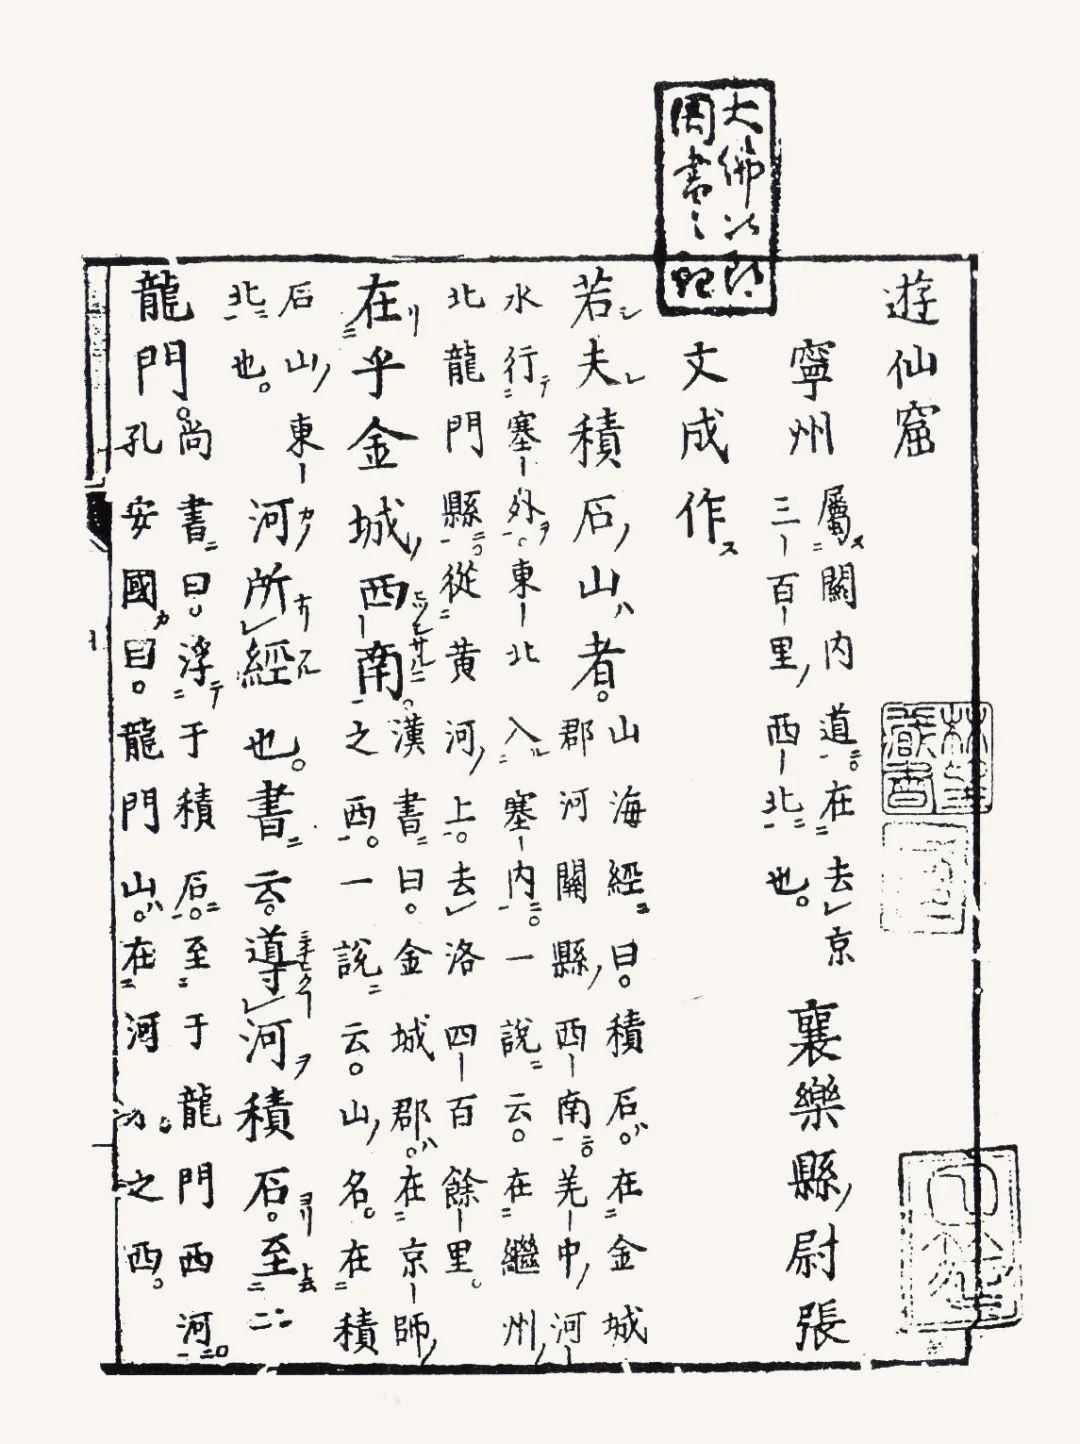 大佛次郎
圖書之記
遊仙窟
寧州
屬關内道。在去京
三百里西北也。
襄樂縣尉張
文成作
若夫積石山者。
山海經曰。積石。在金城
郡河關縣西南。羌中河
水行塞外。東北入塞内。一説云。在繼州
北龍門縣。從黄河上。去洛四百餘里。
在乎金城西南。
漢書曰。金城郡。在京師
之西。一説云。山名。在積
石山東
北也。
河所經也。書云。導河積石。至
龍門。
尚書曰。浮于積石。至于龍門西河。
孔安國曰。龍門山。在河之西。